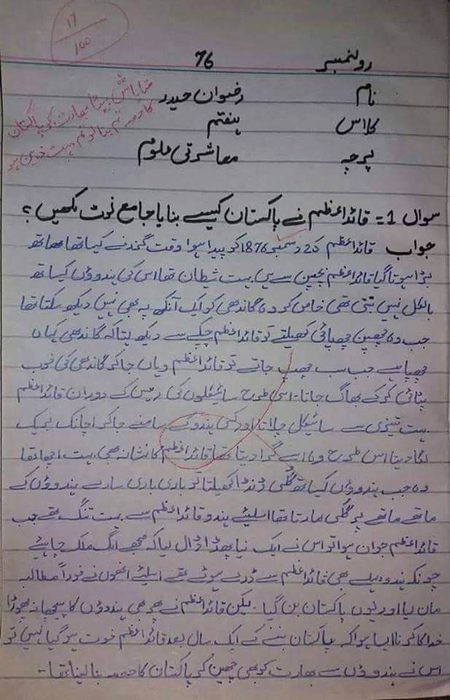 17
100
رولنمبر 76
نام رضوان حیدر
کلاس ہفتم
پرچہ معاشرتی علوم
شاباش بیٹا بھارت کو پاکستان
کا
سوال 1= قائداعظم نے پاکستان کیسے بنایا جامع نوٹ لکھیں؟
جواب قائداعظم 25 دسمبر 1876 کو پیدا ہوا وقت گذرنے کیساتھ ساتھ
بڑا ہوتا گیا قائداعظم بچپن سے ہی بہت شطان تھا اس کی ہندوؤں کیساتھ
بالکل نہیں بنتی تھی خاص کر وہ گاندھی کو ایک آنکھ بھی نہیں دیکھ سکتا تھا
جب وہ چھپن چھپائی کھیلتے تو قائداعظم چپکے سے دیکھ لیتا کہ گاندھی کہاں
چھپا ہے جب سب چھپ جاتے تو قائداعظم وہاں جا کر گاندھی کی خوب
پٹائی کر کے بھاگ جاتا۔ اسی طرح سائیکلوں کی ریس کے دوران قائداعظم
بہت تیزی سے سائیکل چلاتا اور کسی ہندو کے سامنے جا کر اچانک بریک
لگا دیتا اس طرح وہ اسے گرا دیتا تھا قائداعظم کا نشانہ بھی بہت اچھا تھا
وہ جب ہندوؤں کیساتھ گلی ڈنڈا کھیلتا تو باری باری سارے ہندوؤں کے
ماتھے ماتھے پر گلی مارتا تھا اسلیئے ہندو قائداعظم سے بہت تنگ تھے جب
قائداعظم جوان ہوا تو اس نے ایک نیا پھڈا ڈال لیا کہ مجھے ایک ملک چاہیئے
چونکہ ہندو پہلے ہی قائداعظم سے ڈرے ہوئے تھے اسلیئے انھوں نے فوراً مطالبہ
مان لیا اور یوں پاکستان بن گیا۔ لیکن قائداعظم نے پھر بھی ہندوؤں کا پیچھا نہ چھوڑا
خدا کا کرنا ایسا ہوا کہ پاکستان بننے کے ایک سال بعد قائداعظم فوت ہو گیا نہیں تو
اس نے ہندوؤں سے بھارت کو بھی چھین کر پاکستان کا حصہ بنا لینا تھا۔